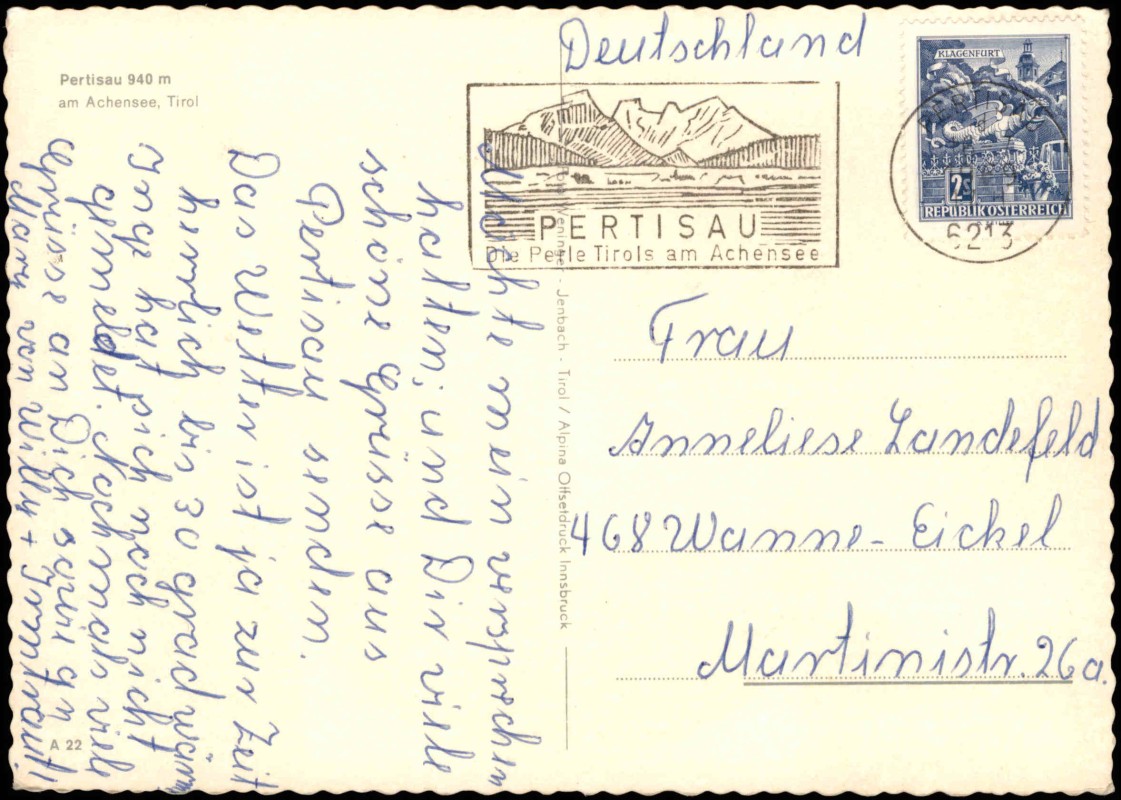 Pertisau 940 m
am Achensee, Tirol
Deutschland
KLAGENFURT
2s
REPUBLIK ÖSTERREICH
6213
PERTISAU
Die Perle Tirols am Achensee
Möchte mein versprechen
halten, und Dir viele
schöne Grüsse aus
Pertisau senden.
Das Wetter ist ja zur Zeit
herrlich bis 30 grad wärm
Inge hat sich noch nicht
gemeldet. Nochmals viele
Grüsse an Dich sowie an
von Willy + Irmtraut.
Frau
Anneliese Landefeld
468 Wanne-Eickel
Martinistr. 26a.
Jenbach - Tirol / Alpina Offsetdruck Innsbruck
A 22